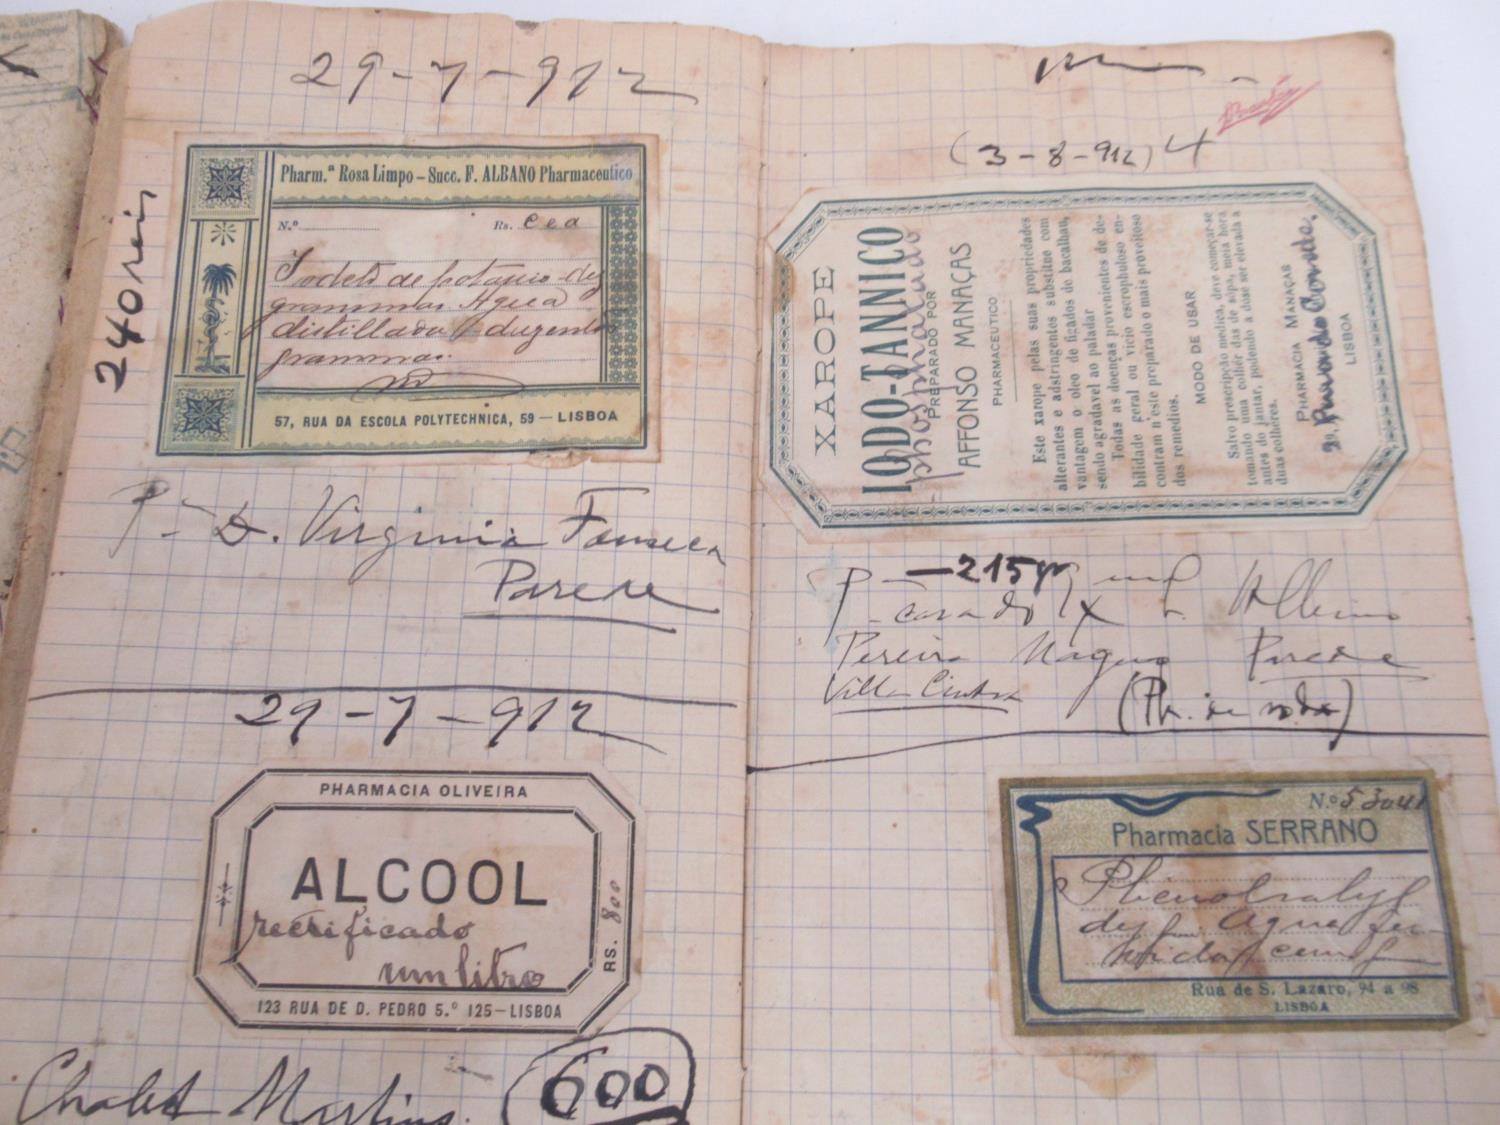 29-7-912
240 reis
Pharm.ª Rosa Limpo – Succ. F. ALBANO Pharmaceutico
N.º Rs. cea
Iodeto de potassio dez
grammas Agua
distillada duzentas
grammas.
57, RUA DA ESCOLA POLYTECHNICA, 59 – LISBOA
P- D. Virginia Fonseca
Parede
29-7-912
PHARMACIA OLIVEIRA
ALCOOL
rectificado
um litro
RS. 800
123 RUA DE D. PEDRO 5.º 125 – LISBOA
Chalet Martins.
600
(3-8-912) 4
XAROPE
IODO-TANNICO
phosphatado
PREPARADO POR
AFFONSO MANAÇAS
PHARMACEUTICO
Este xarope pelas suas propriedades
alterantes e adstringentes substitue com
vantagem o oleo de figados de bacalhau,
sendo agradavel ao paladar
Todas as doenças provenientes de de-
bilidade geral ou vicio escrophuloso en-
contram n'este preparado o mais proveitoso
dos remedios.
MODO DE USAR
Salvo prescripção medica, deve começar-se
tomando uma colhér das de sôpa, meia hora
antes do jantar, podendo a dose ser elevada a
duas colhéres.
PHARMACIA MANAÇAS
29, Rua do Conde.
LISBOA
P- -215
Pereira Parede
Villa Cintra
(Ph. de
N.º 53041
Pharmacia SERRANO
Agua fer-
vida
Rua de S. Lazaro, 94 a 98
LISBOA